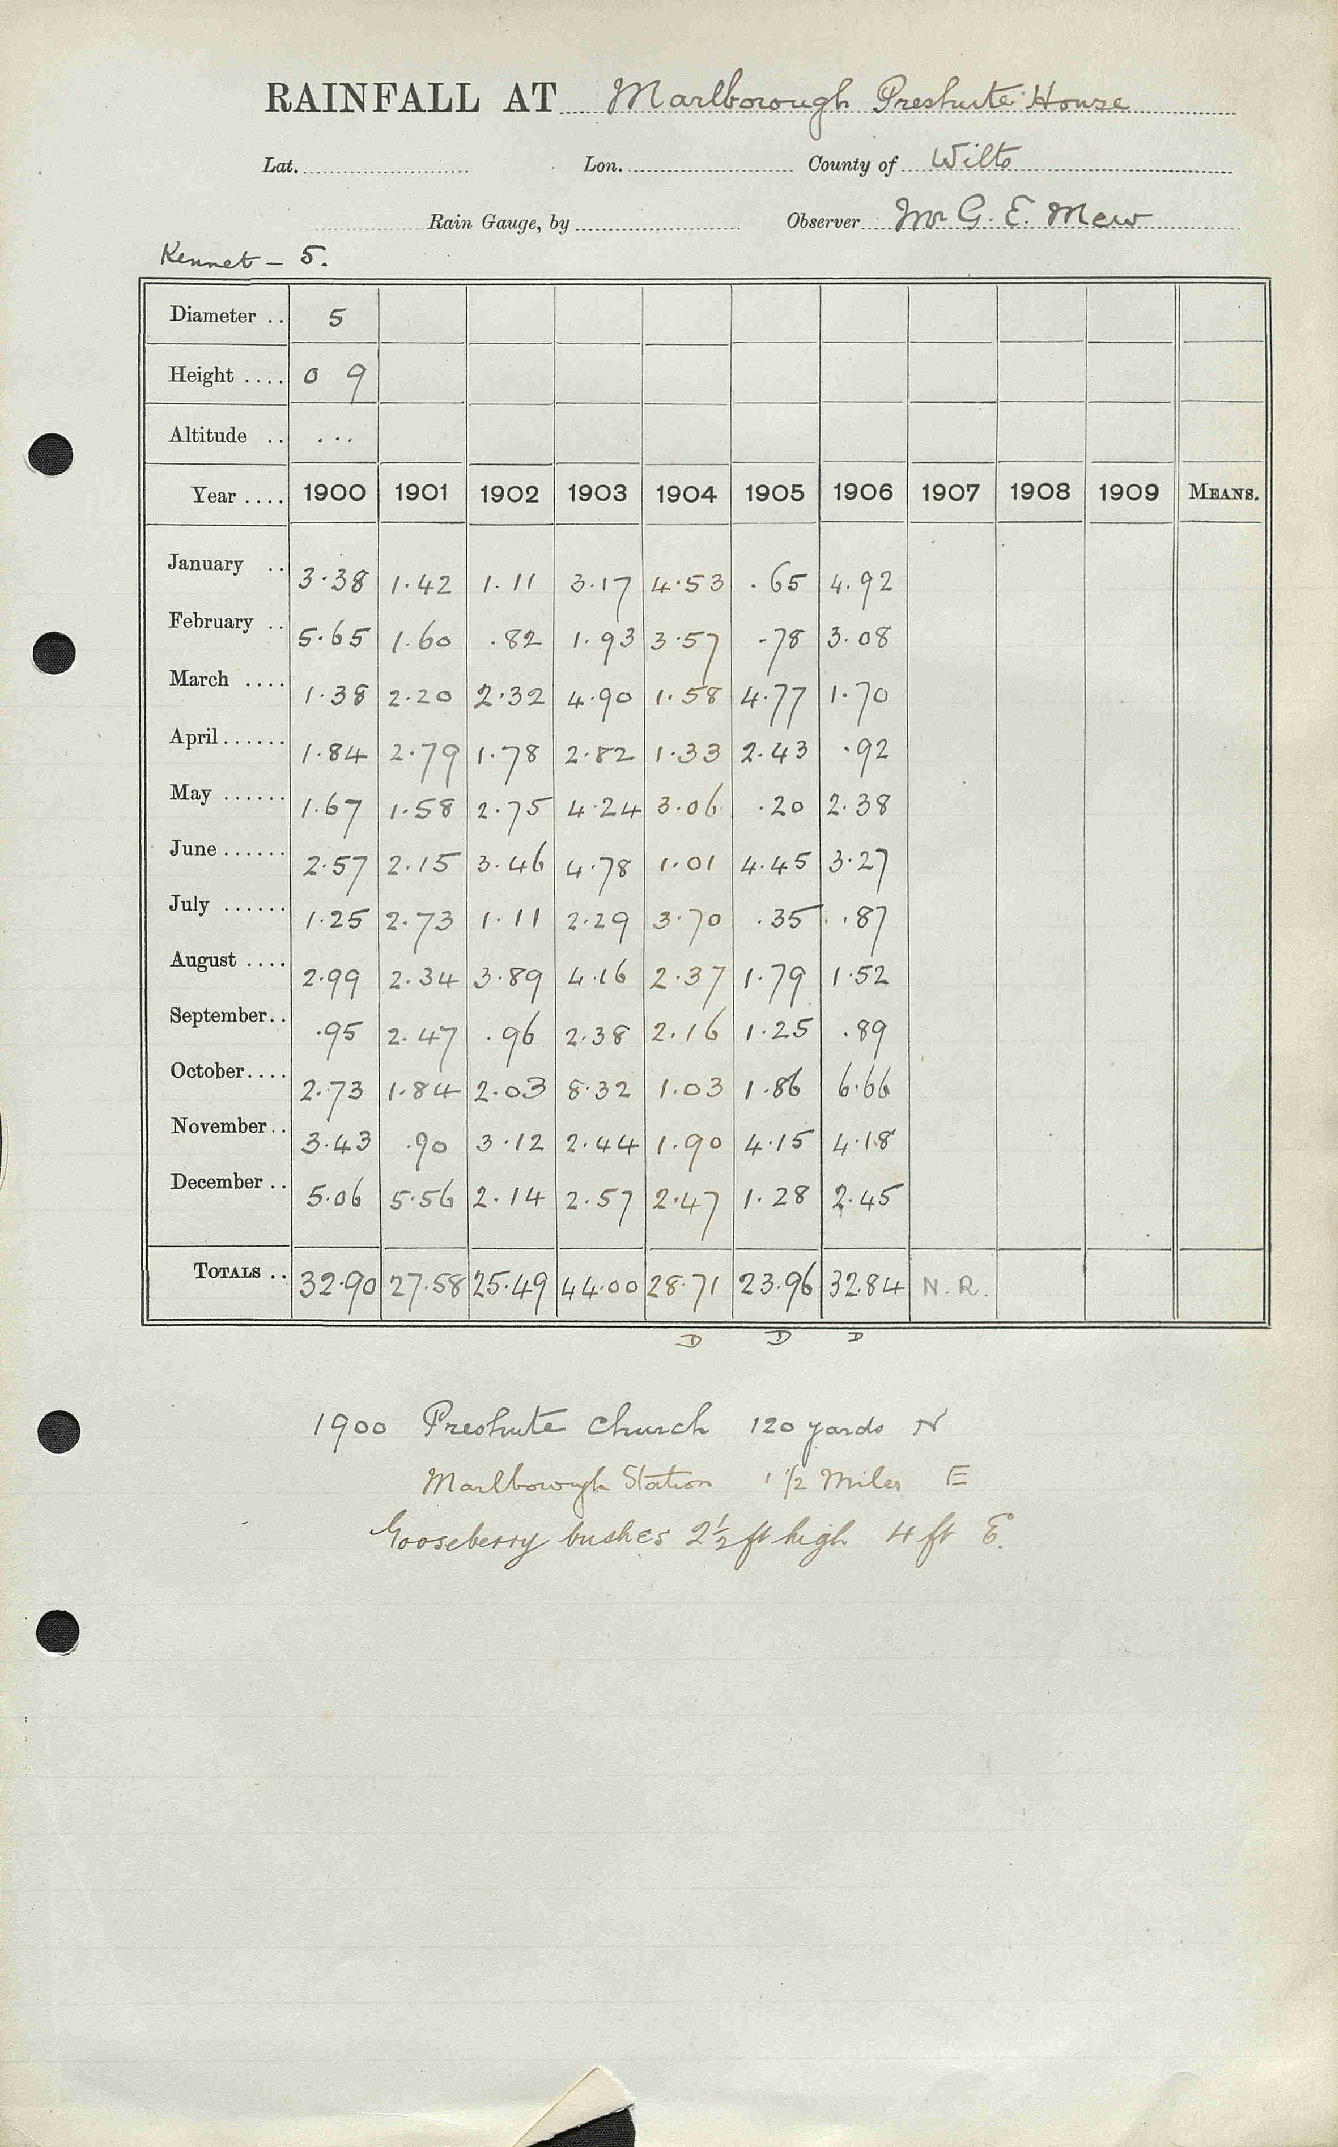 RAINFALL AT Marlborough Preshute House
Lat. Lon. County of Wilts
Rain Gauge, by Observer Mr G. E. Mew
Kennet - 5.
Diameter .. 5
Height .... 0 9
Altitude .. ...
Year .... 1900 1901 1902 1903 1904 1905 1906 1907 1908 1909 MEANS.
January .. 3.38 1.42 1.11 3.17 4.53 .65 4.92
February .. 5.65 1.60 .82 1.93 3.57 .78 3.08
March .... 1.38 2.20 2.32 4.90 1.58 4.77 1.70
April...... 1.84 2.79 1.78 2.82 1.33 2.43 .92
May ...... 1.67 1.58 2.75 4.24 3.06 .20 2.38
June...... 2.57 2.15 3.46 4.78 1.01 4.45 3.27
July ...... 1.25 2.73 1.11 2.29 3.70 .35 .87
August .... 2.99 2.34 3.89 4.16 2.37 1.79 1.52
September.. .95 2.47 .96 2.38 2.16 1.25 .89
October.... 2.73 1.84 2.03 8.32 1.03 1.86 6.66
November.. 3.43 .90 3.12 2.44 1.90 4.15 4.18
December .. 5.06 5.56 2.14 2.57 2.47 1.28 2.45
TOTALS .. 32.90 27.58 25.49 44.00 28.71 23.96 32.84 N.R.
D D D
1900 Preshute Church 120 yards N
Marlborough Station 1 1/2 Miles E
Gooseberry bushes 2 1/2 ft high 4 ft E.